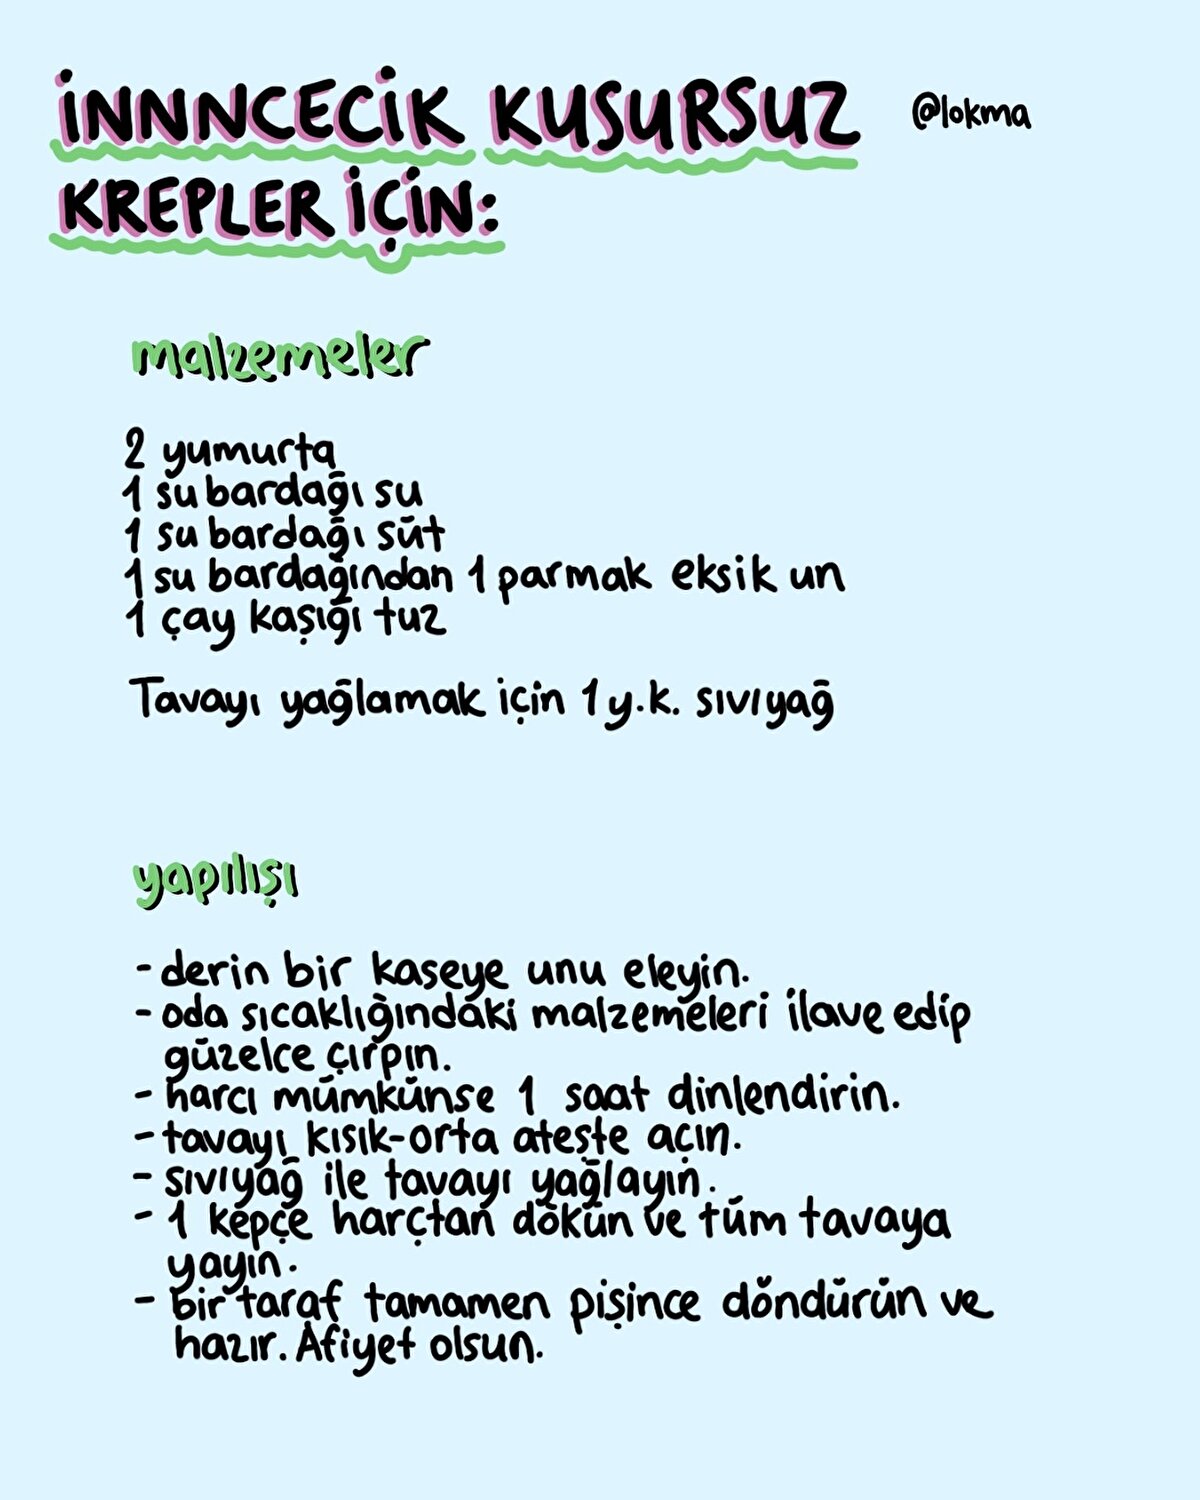 İNNNCECİK KUSURSUZ @lokma
KREPLER İÇİN:
malzemeler
2 yumurta
1 su bardağı su
1 su bardağı süt
1 su bardağından 1 parmak eksik un
1 çay kaşığı tuz
Tavayı yağlamak için 1 y.k. sıvıyağ
yapılışı
- derin bir kaseye unu eleyin.
- oda sıcaklığındaki malzemeleri ilave edip
güzelce çırpın.
- harcı mümkünse 1 saat dinlendirin.
- tavayı kısık-orta ateşte açın.
- sıvıyağ ile tavayı yağlayın.
- 1 kepçe harçtan dökün ve tüm tavaya
yayın.
- bir taraf tamamen pişince döndürün ve
hazır. Afiyet olsun.